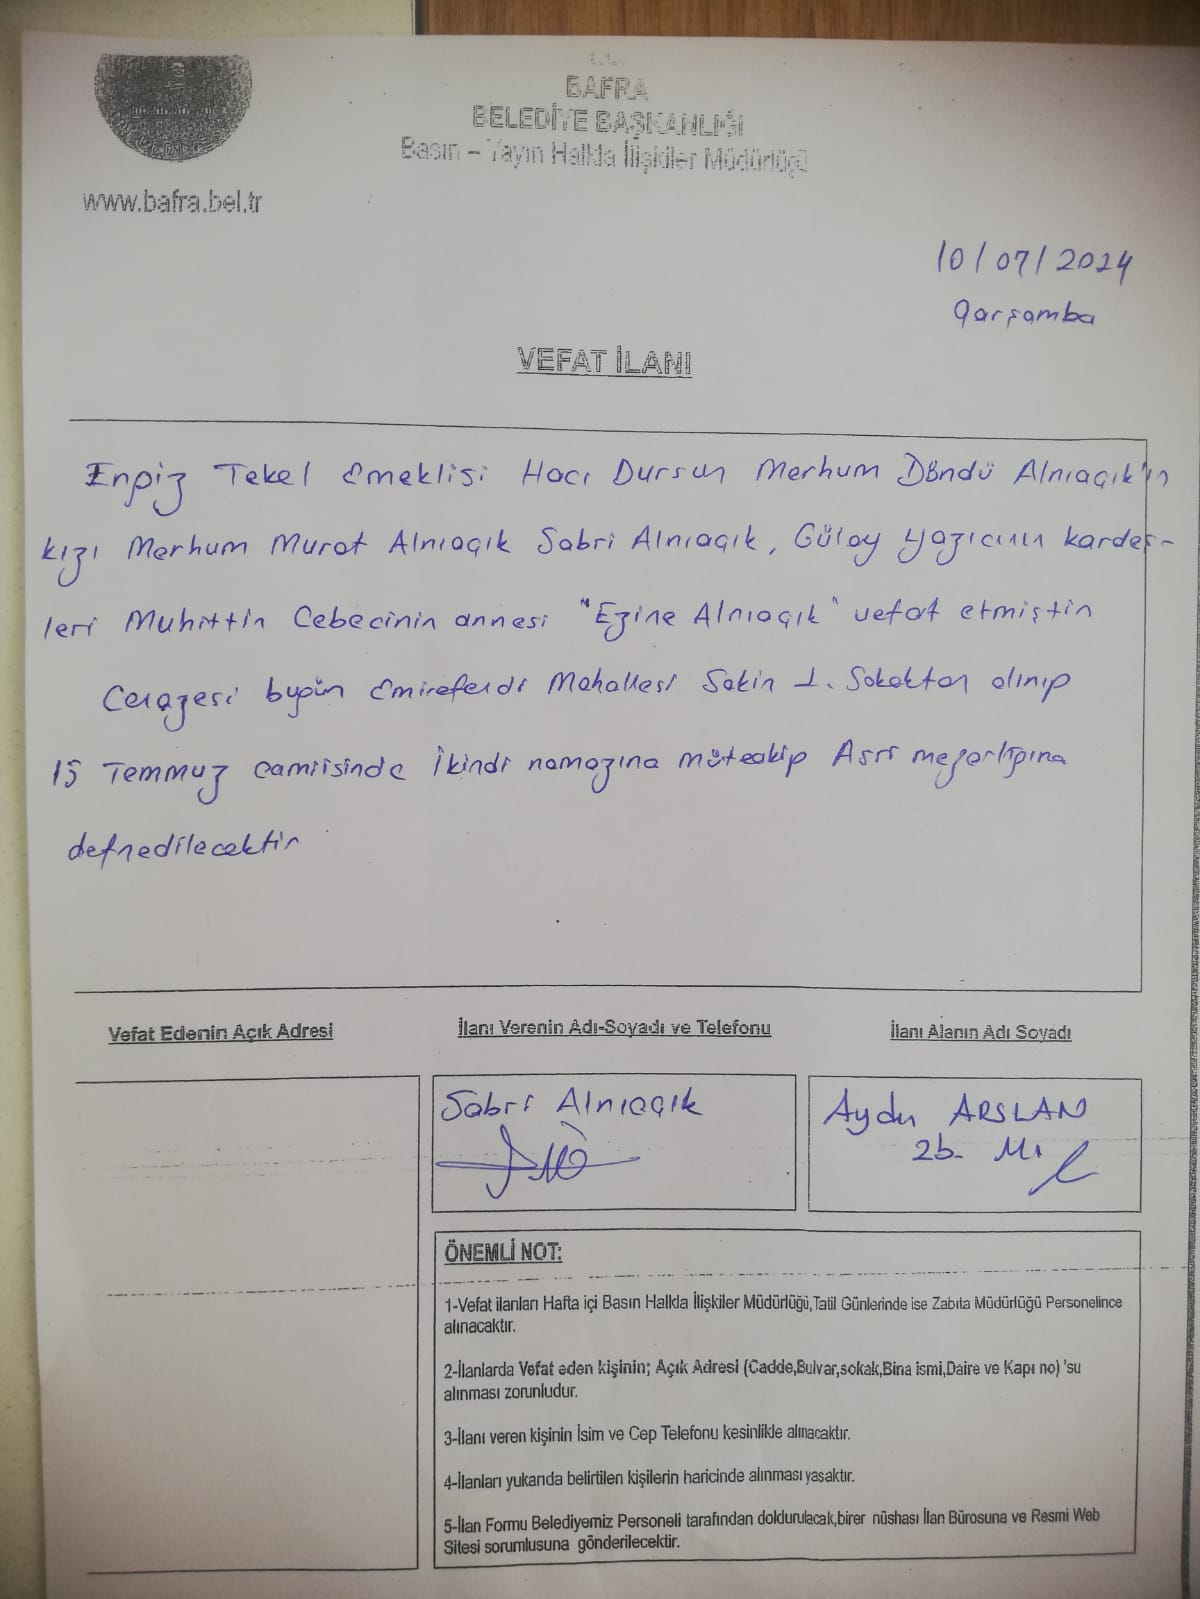 T.C.
BAFRA
BELEDİYE BAŞKANLIĞI
Basın – Yayın Halkla İlişkiler Müdürlüğü
www.bafra.bel.tr
10/07/2024
Çarşamba
VEFAT İLANI
Enpiz Tekel Emeklisi Hacı Dursun Merhum Döndü Alnıaçık'ın
kızı Merhum Murat Alnıaçık Sabri Alnıaçık, Gülay Yazıcının kardeş-
leri Muhittin Cebecinin annesi "Ezine Alnıaçık" vefat etmiştir
Cenazesi bugün Emirefendi Mahallesi Sakin 1. Sokaktan alınıp
15 Temmuz camiisinde İkindi namazına müteakip Asri mezarlığına
defnedilecektir
Vefat Edenin Açık Adresi
İlanı Verenin Adı-Soyadı ve Telefonu
İlanı Alanın Adı Soyadı
Sabri Alnıaçık
Aydın ARSLAN
ÖNEMLİ NOT:
1-Vefat ilanları Hafta içi Basın Halkla İlişkiler Müdürlüğü,Tatil Günlerinde ise Zabıta Müdürlüğü Personelince
alınacaktır.
2-İlanlarda Vefat eden kişinin; Açık Adresi (Cadde,Bulvar,sokak,Bina ismi,Daire ve Kapı no) 'su
alınması zorunludur.
3-İlanı veren kişinin İsim ve Cep Telefonu kesinlikle alınacaktır.
4-İlanları yukarıda belirtilen kişilerin haricinde alınması yasaktır.
5-İlan Formu Belediyemiz Personeli tarafından doldurulacak,birer nüshası İlan Bürosuna ve Resmi Web
Sitesi sorumlusuna gönderilecektir.